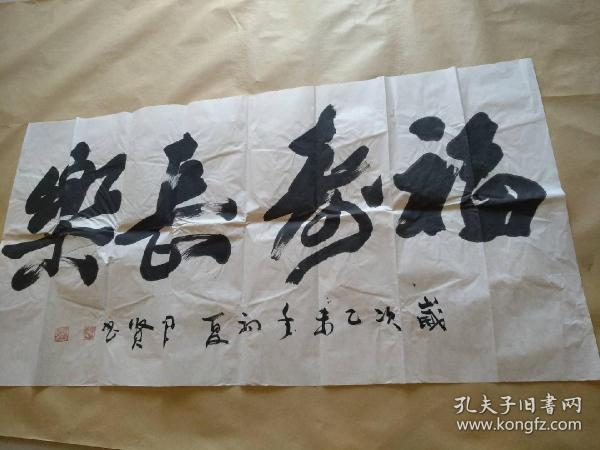 福寿長樂
歲次乙未年初夏尹贤书
孔夫子旧書网
www.kongfz.com